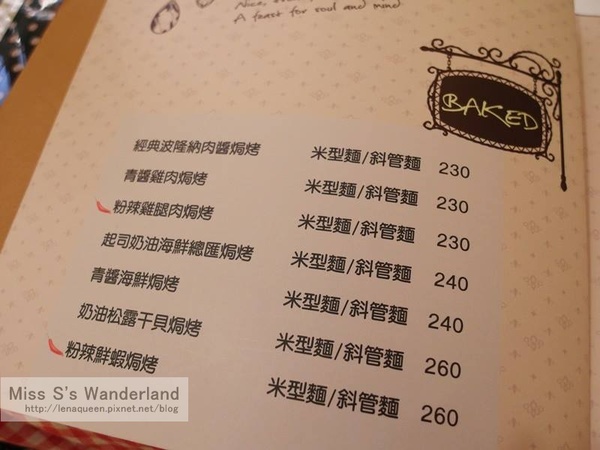 A feast for soul and mind
BAKED
經典波隆納肉醬焗烤 米型麵/斜管麵 230
青醬雞肉焗烤 米型麵/斜管麵 230
粉辣雞腿肉焗烤 米型麵/斜管麵 230
起司奶油海鮮總匯焗烤 米型麵/斜管麵 240
青醬海鮮焗烤 米型麵/斜管麵 240
奶油松露干貝焗烤 米型麵/斜管麵 260
粉辣鮮蝦焗烤 米型麵/斜管麵 260
Miss S's Wanderland
http://lenaqueen.pixnet.net/blog